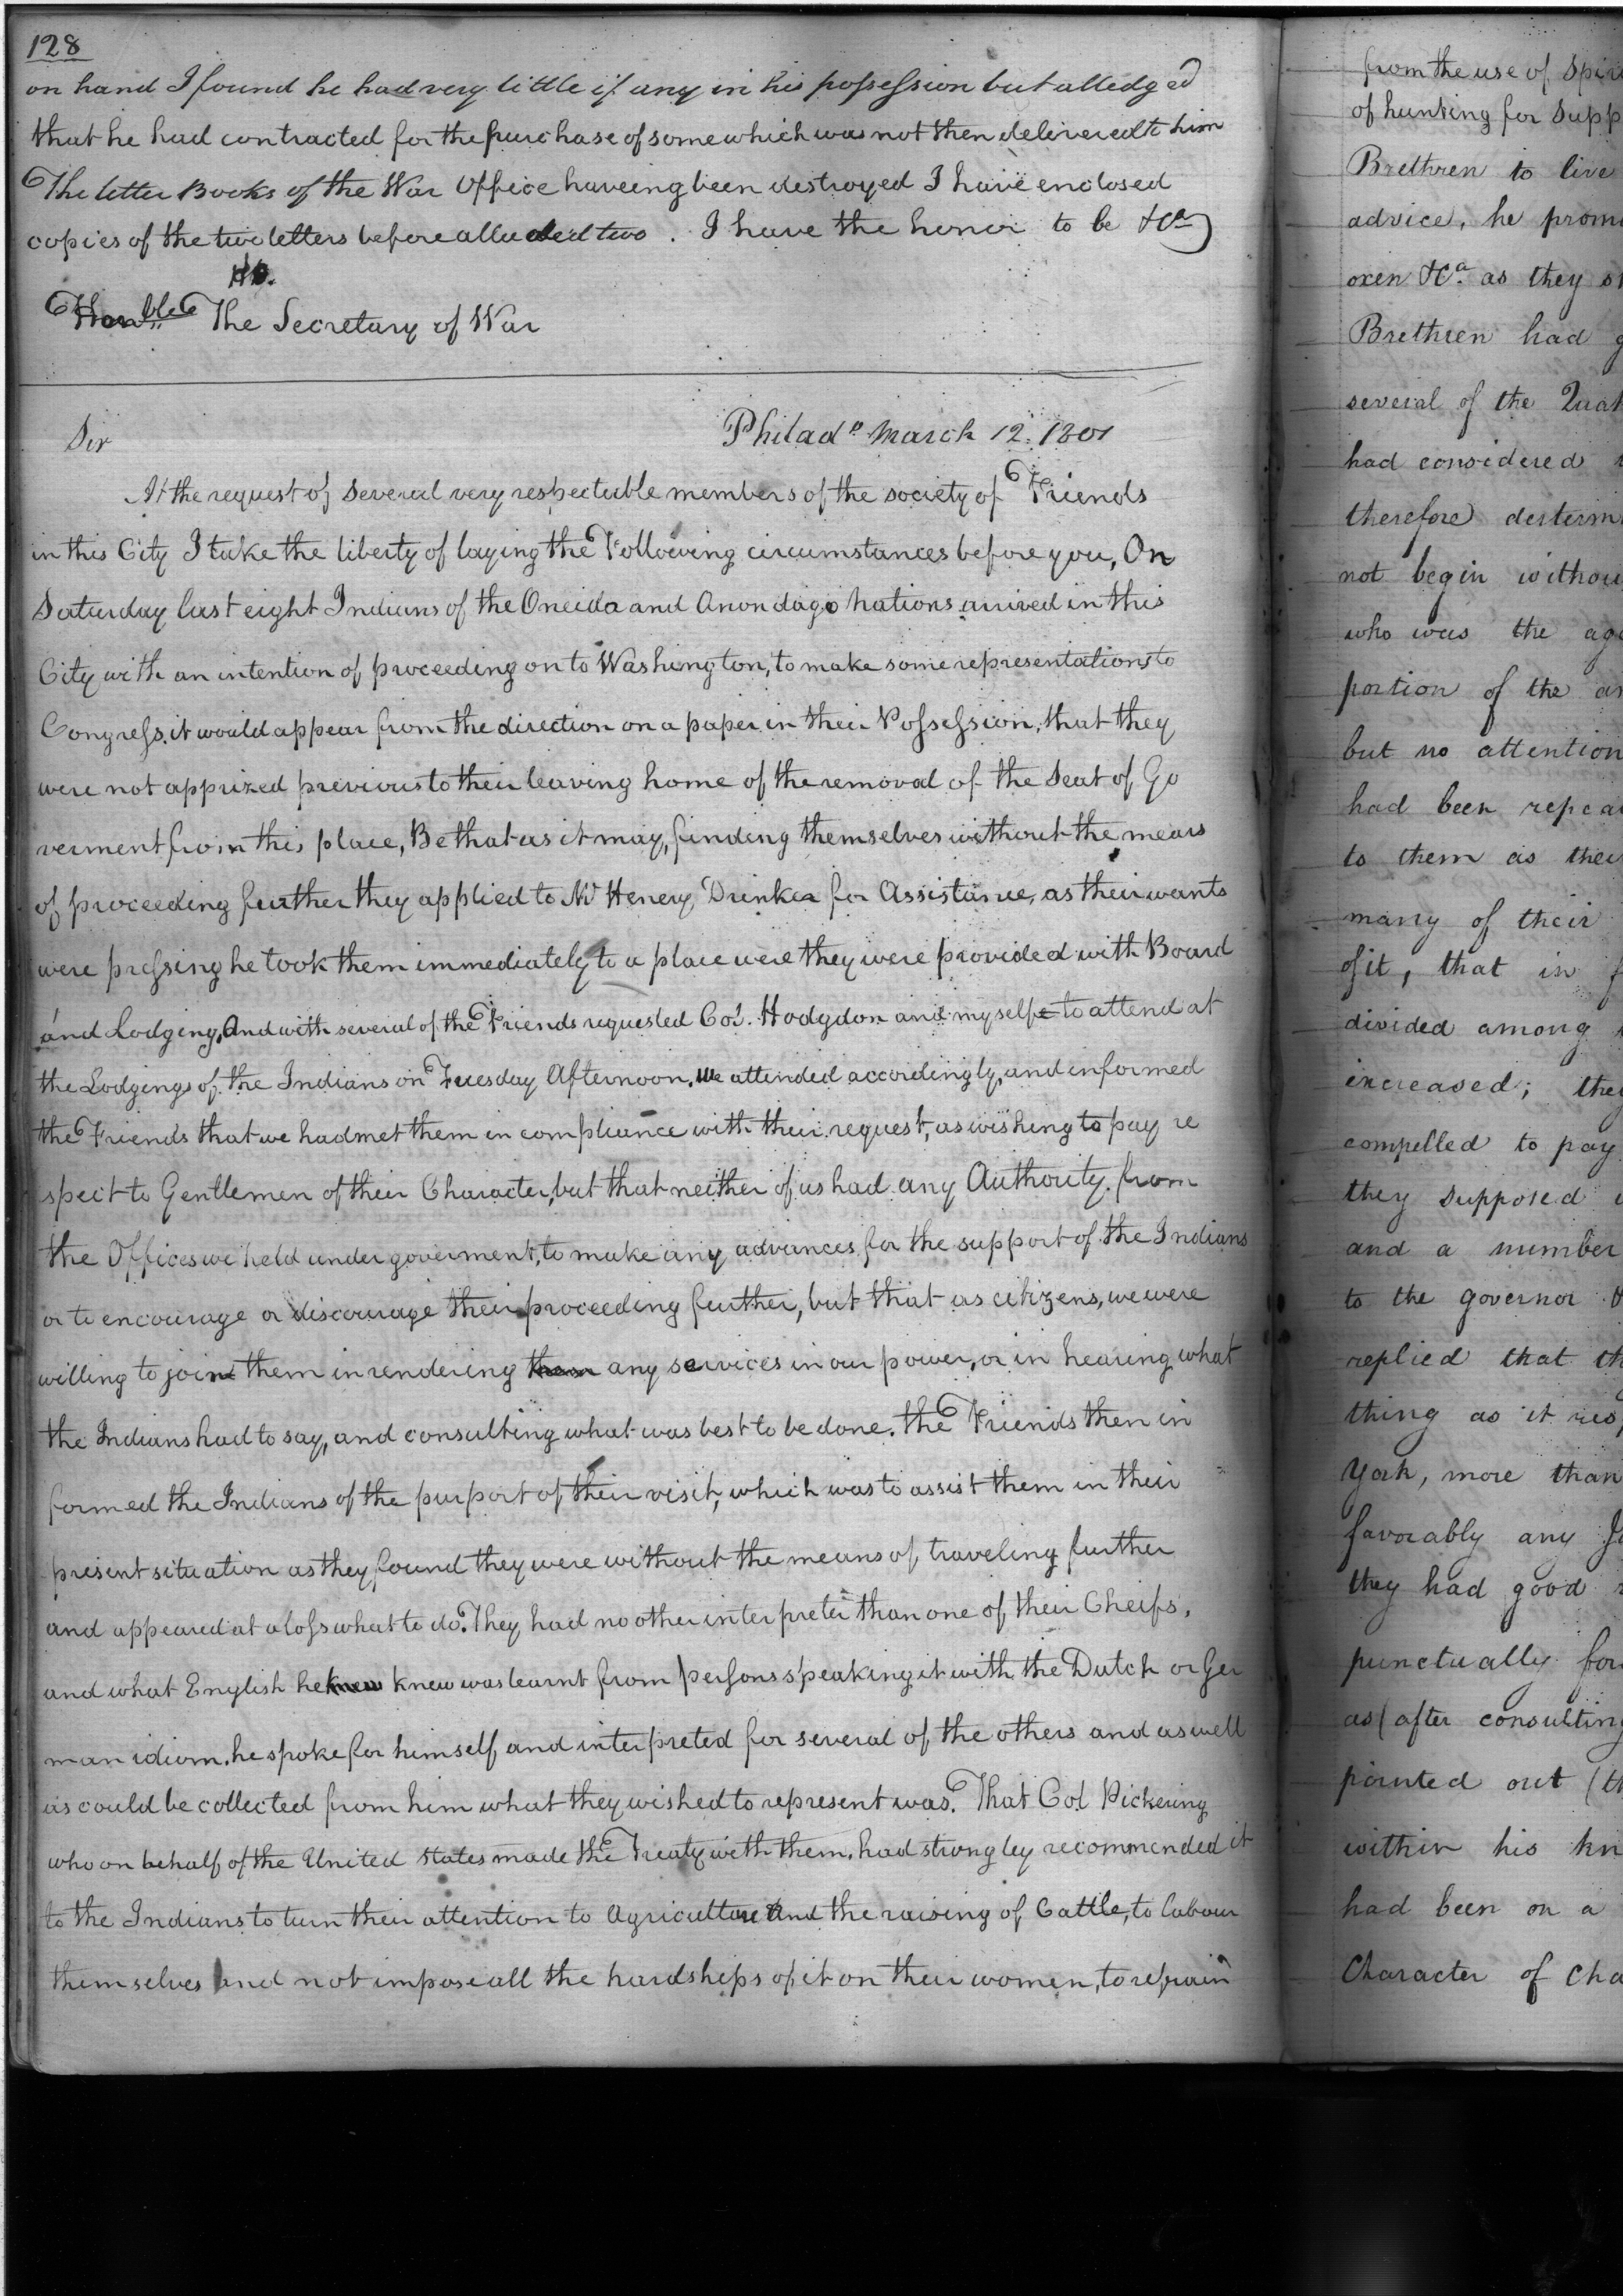 128
on hand I found he had very little if any in his possession but alledged
that he had contracted for the purchase of some which was not then delivered to him
The letter Books of the War Office haveing been destroyed I have enclosed
copies of the two letters before alluded two. I have the honor to be &Ca
The Secretary of War
Philada March 12. 1801
Sir
At the request of several very respectable members of the society of Friends
in this City I take the liberty of laying the Following circumstances before you, On
Saturday last eight Indians of the Oneida and Anondago Nations arrived in this
City with an intention of proceeding on to Washington, to make some representations to
Congress, it would appear from the direction on a paper in their Possession, that they
were not apprized previous to their leaving home of the removal of the Seat of Go
verment from this place, Be that as it may, finding themselves without the means
of proceeding further they applied to Mr Henery Drinker for Assistance, as their wants
were pressing he took them immediately to a place were they were provided with Board
and Lodging, And with several of the Friends requested Col. Hodgdon and myself to attend at
the Lodgings of the Indians on Tuesday Afternoon. We attended accordingly, and informed
the Friends that we had met them in compliance with their request, as wishing to pay re
spect to Gentlemen of their Character, but that neither of us had any Authority from
the Offices we held under goverment, to make any advances for the support of the Indians
or to encourage or discourage their proceeding further, but that as citizens, we were
willing to join them in rendering them any services in our power, or in hearing what
the Indians had to say, and consulting what was best to be done. the Friends then in
formed the Indians of the purport of their visit, which was to assist them in their
present situation as they found they were without the means of traveling further
and appeared at a loss what to do. They had no other interpreter than one of their Cheifs,
and what English he knew knew was learnt from persons speaking it with the Dutch or Ger
man idiom. he spoke for himself and interpreted for several of the others and as well
as could be collected from him what they wished to represent was. That Col Pickering
who on behalf of the United States made the Treaty with them. had strongley recommended it
to the Indians to turn their attention to Agriculture And the raising of Cattle, to labour
themselves and not impose all the hardships of it on their women, to refrain
from the use of
of hunting for
Brethren to live
advice, he
oxen &Ca as they
Brethren had
several of the
had considered
therefore
not begin
who was the
portion of the
but no attention
had been
to them as
many of their
of it, that in
divided among
increased;
compelled to pay
they supposed
and a number
to the governor
replied that
thing as it
York, more than
favorably any
they had good
punctually
as (after consulting
pointed out
within his
had been on a
Character of